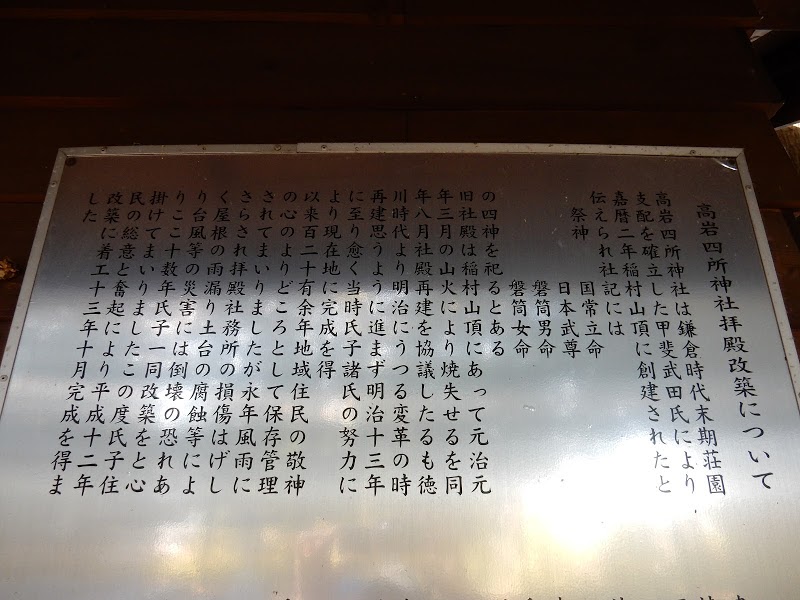 高岩四所神社拝殿改築について
高岩四所神社は鎌倉時代末期荘園
支配を確立した甲斐武田氏により
嘉暦二年稲村山頂に創建されたと
伝えられ社記には
祭神　国常立命
日本武尊
磐筒男命
磐筒女命
の四神を祀るとある
旧社殿は稲村山頂にあって元治元
年三月の山火により焼失せるを同
年八月社殿再建を協議したるも徳
川時代より明治にうつる変革の時
再建思うように進まず明治十三年
に至り愈く当時氏子諸氏の努力に
より現在地に完成を得
以来百二十有余年地域住民の敬神
の心のよりどころとして保存管理
されてまいりましたが永年風雨に
さらされ拝殿社務所の損傷はげし
く屋根の雨漏り土台の腐蝕等によ
り台風等の災害には倒壊の恐れあ
りここ十数年氏子一同改築をと心
掛けてまいりましたこの度氏子住
民の総意と奮起により平成十二年
改築に着工十三年十月完成を得ま
した